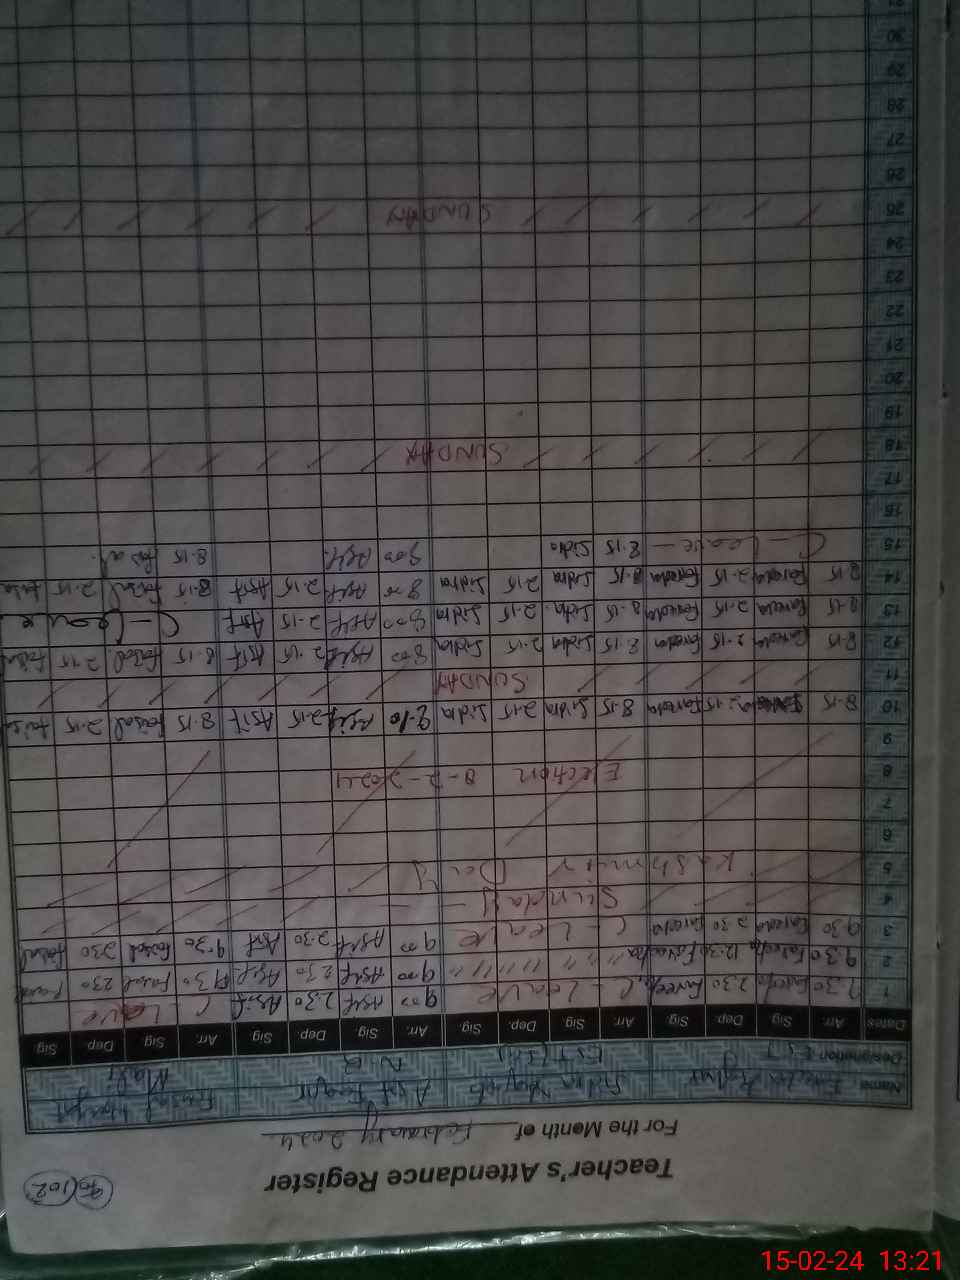 Teacher's Attendance Register
For the Month of February 2024
Name:
Designation: EST EST (Sci) N-Q Mali
Dates Arr. Sig Dep. Sig Arr. Sig Dep. Sig Arr. Sig Dep. Sig Arr. Sig Dep. Sig
1 9.30 Fareeda 2.30 Fareeda C - Leave 9.00 Asif 2.30 Asif C - Leave
2 9.30 Fareeda 12.30 Fareeda " " " " " " 9.00 Asif 2.30 Asif 9.30 Faisal 2.30
3 9.30 Fareeda 2.30 Fareeda C - Leave 9.00 Asif 2.30 Asif 9.30 Faisal 2.30 Faisal
4 Sunday
5 Kashmir Day
6
7
8 Election 8-2-2024
9
10 8.15 2.15 Fareeda 8.15 Sidra 2.15 Sidra 8.10 Asif 2.15 Asif 8.15 Faisal 2.15 Faisal
11 SUNDAY
12 8.15 Fareeda 2.15 Fareeda 8.15 Sidra 2.15 Sidra 8.00 Asif 2.15 Asif 8.15 Faisal 2.15 Faisal
13 8.15 Fareeda 2.15 Fareeda 8.15 Sidra 2.15 Sidra 8.00 Asif 2.15 Asif C - Leave
14 8.15 Fareeda 2.15 Fareeda 8.15 Sidra 2.15 Sidra 8.00 Asif 2.15 Asif 8.15 Faisal 2.15 Faisal
15 C - Leave - 8.15 Sidra 8.00 Asif 8.15 Faisal
16
17
18 SUNDAY
19
20
21
22
23
24
25 SUNDAY
26
27
28
29
30
31
15-02-24 13:21